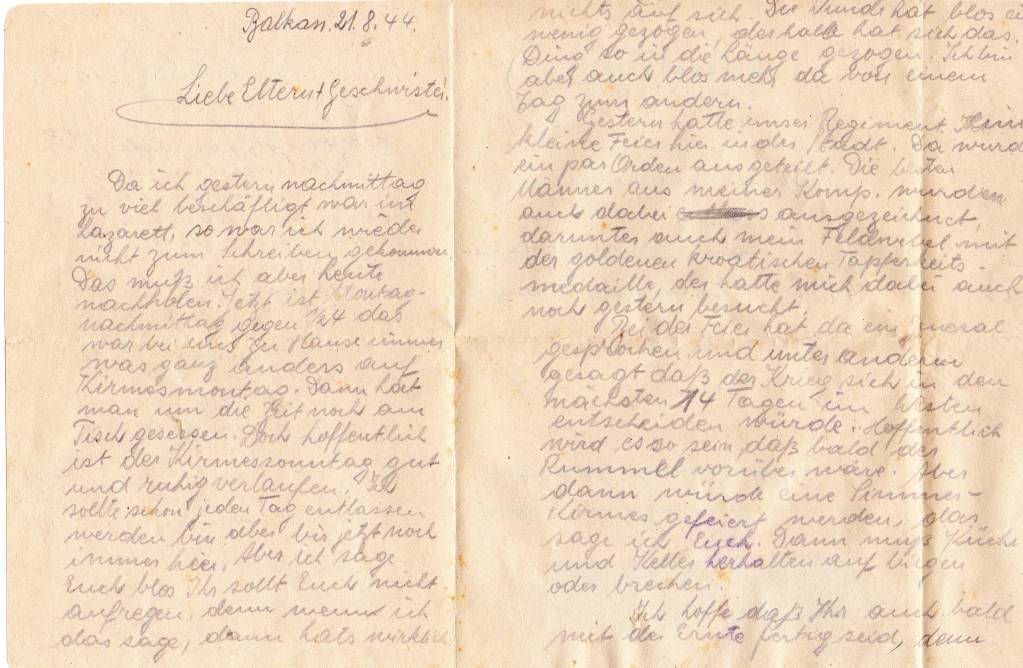 Balkan. 21.8.44.
Liebe Eltern + Geschwister!
Da ich gestern nachmittag
zu viel beschäftigt war im
Lazarett, so war ich wieder
nicht zum Schreiben gekommen.
Das muß ich aber heute
nachholen. Jetzt ist Montag-
nachmittag gegen 1/24 das
war bei uns zu Hause immer
was ganz anders auf
Kirmesmontag. Dann hat
man um die Zeit noch am
Tisch gesessen. Doch hoffentlich
ist der Kirmessonntag gut
und ruhig verlaufen. Ich
sollte schon jeden Tag entlassen
werden bin aber bis jetzt noch
immer hier. Aber ich sage
Euch blos Ihr sollt Euch nicht
aufregen, denn wenn ich
das sage, dann hats wirklich
nichts auf sich. Die Wunde hat blos ein
wenig gezogen, deshalb hat sich das
Ding so in die Länge gezogen. Ich bin
aber auch blos mehr da von einem
Tag zum andern.
Gestern hatte unser Regiment
kleine Feier hier in der Stadt. Da wurd
ein par Orden ausgeteilt. Die besten
Männer aus meiner Komp. wurden
auch dabei ausgezeichnet,
darunter auch mein Feldwebel mit
der goldenen kroatischen Tapferkeits-
medaille, der hatte mich dabei auch
noch gestern besucht.
Bei der Feier hat da ein General
gesprochen und unter anderm
gesagt daß der Krieg sich in den
nächsten 14 Tagen im Westen
entscheiden würde. Hoffentlich
wird es so sein, daß bald der
Rummel vorüber wäre. Aber
dann würde eine
Kirmes gefeiert werden, das
sage ich Euch. Dann muß Küche
und Keller herhalten auf biegen
oder brechen.
Ich hoffe daß Ihr auch bald
mit der Ernte fertig seid, denn